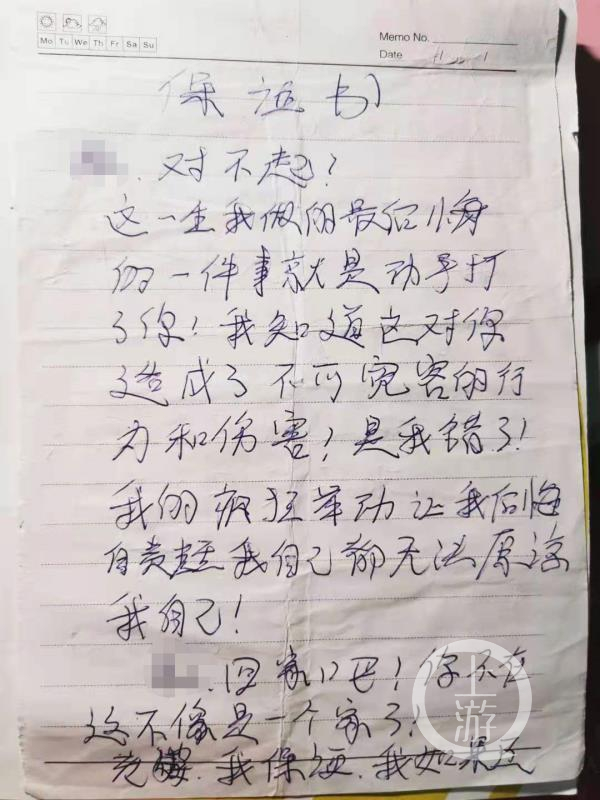 Mo Tu We Th Fr Sa Su
Memo No.
Date
保证书
对不起！
这一生我做的最后悔
的一件事就是动手打
了你！我知道这对你
造成了不可宽容的行
为和伤害！是我错了！
我的疯狂举动让我后悔
自责 我自己都无法原谅
我自己！
回家吧！你不在
这不像是一个家了！
我保证，我如果还
上游